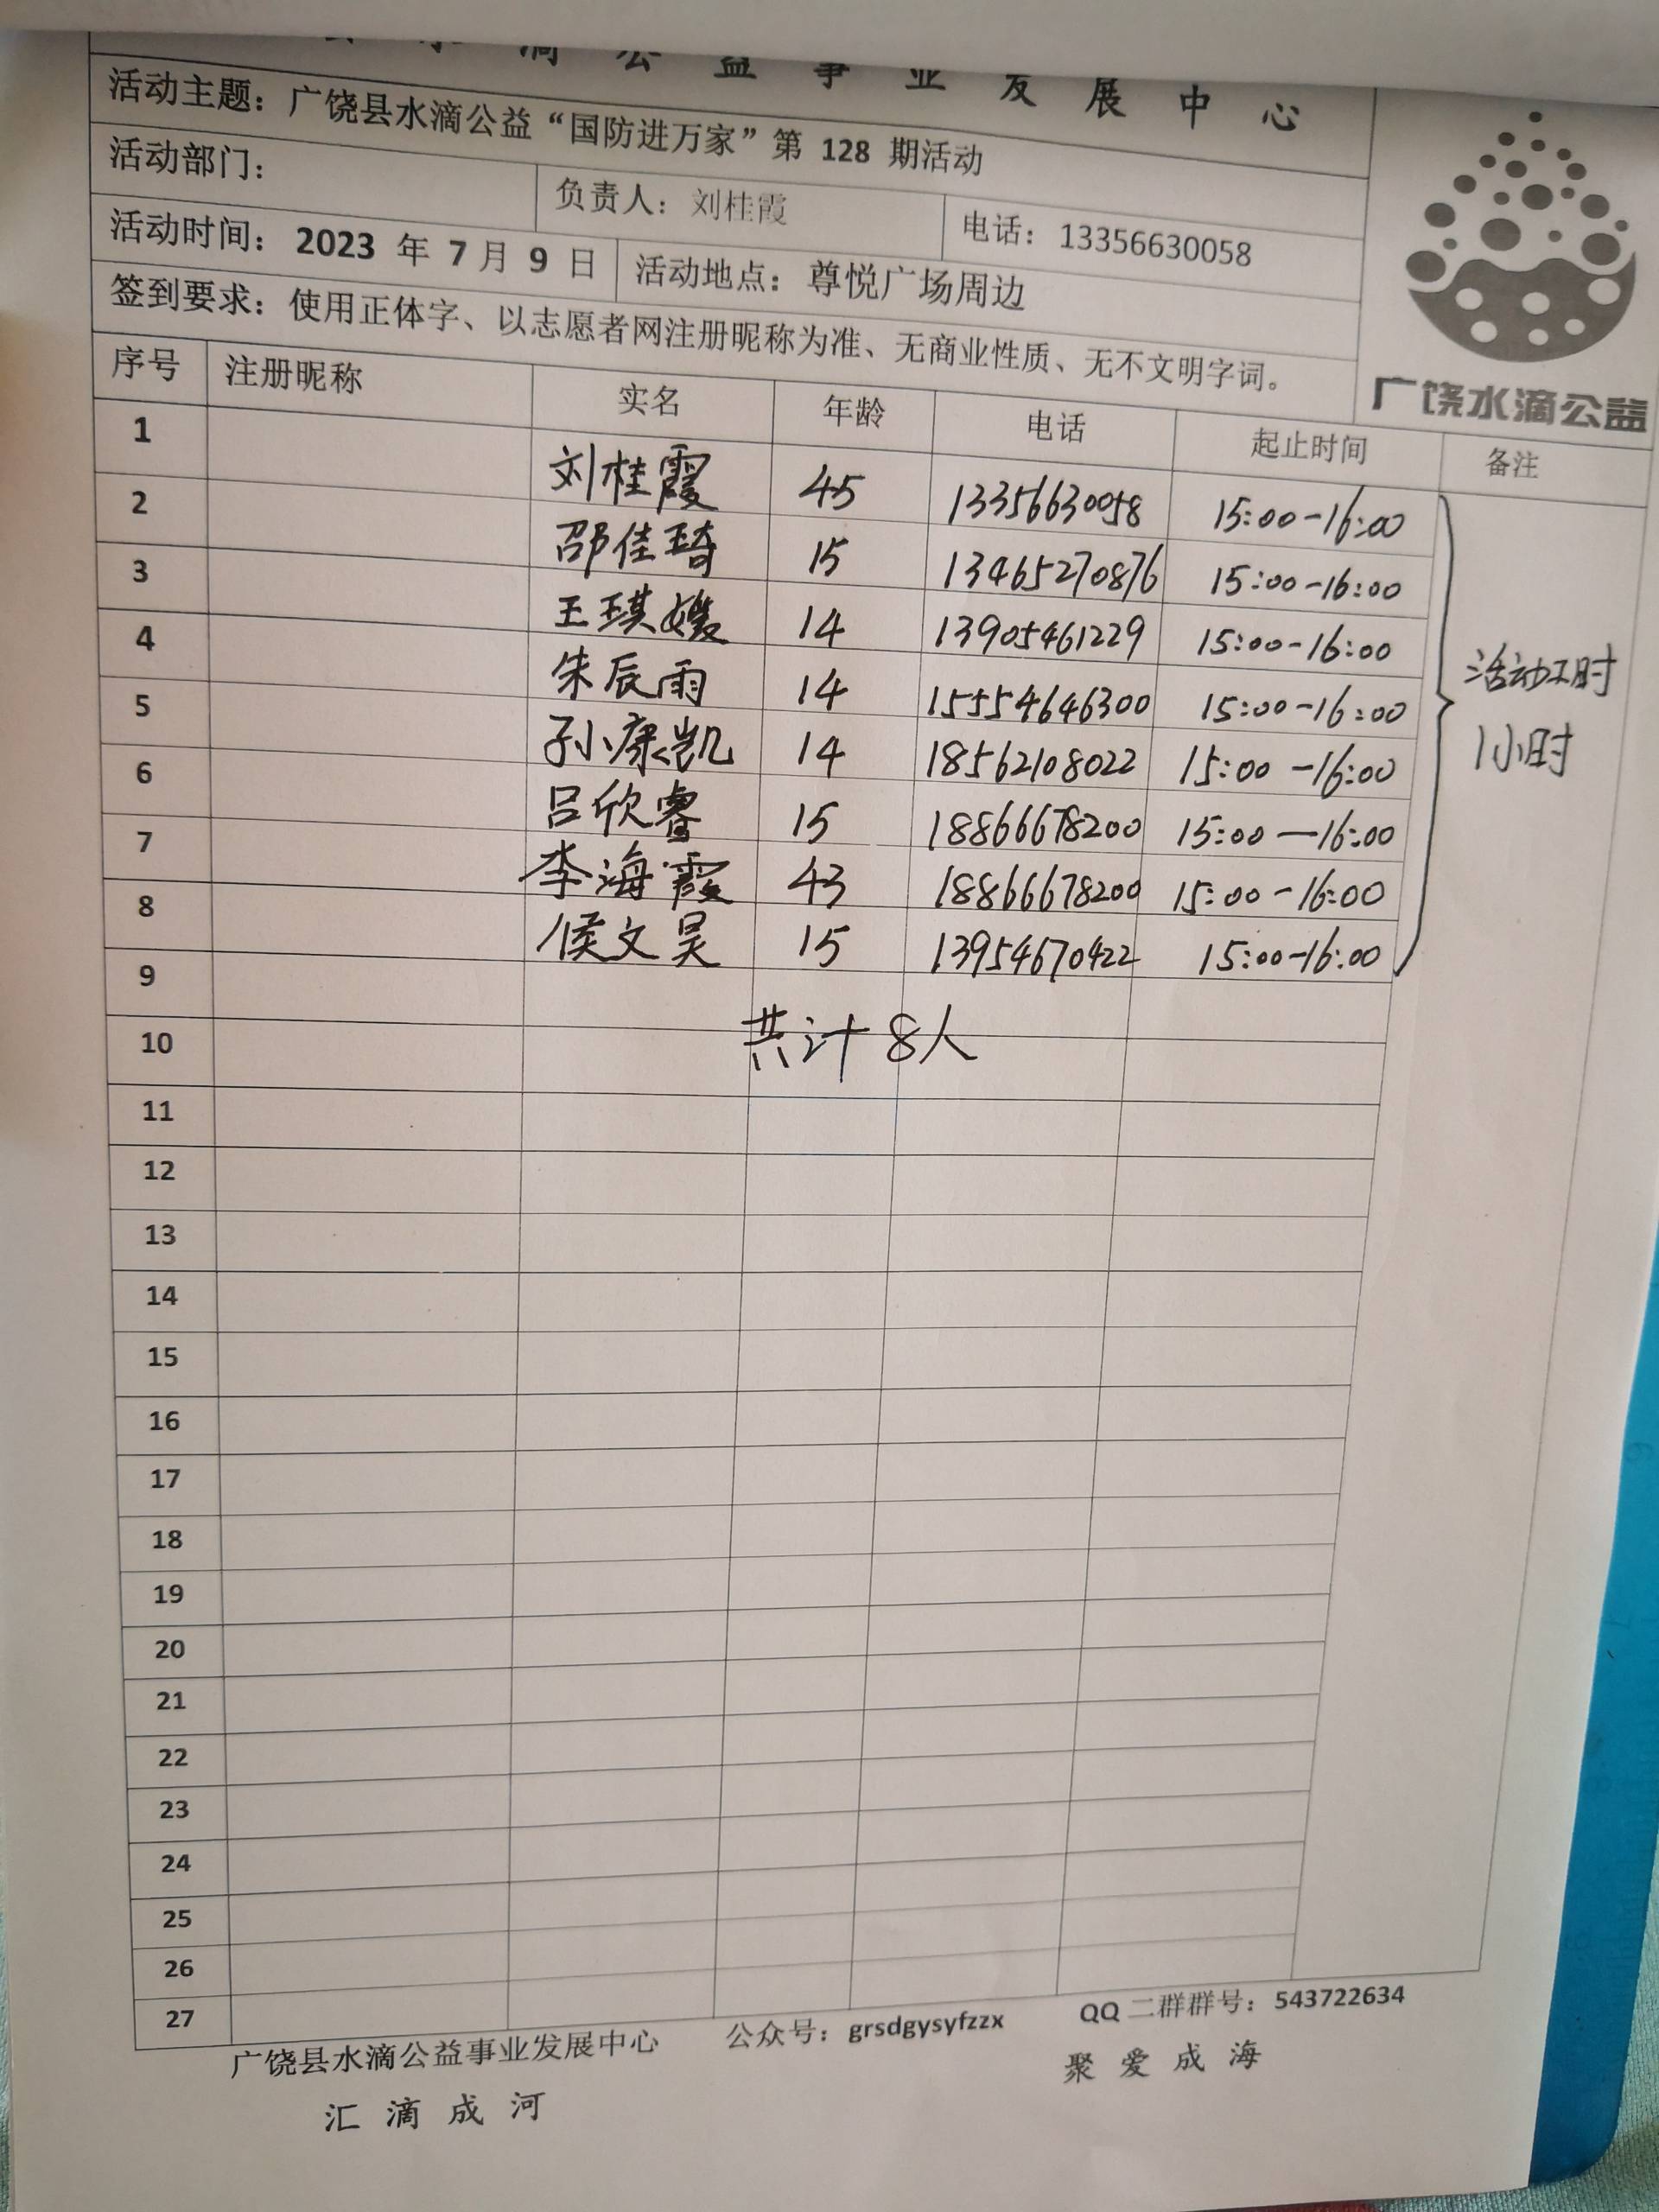 水滴公益事业发展中心
活动主题：广饶县水滴公益“国防进万家”第 128 期活动
活动部门： 负责人：刘桂霞 电话：13356630058
活动时间：2023 年 7 月 9 日 活动地点：尊悦广场周边
签到要求：使用正体字、以志愿者网注册昵称为准、无商业性质、无不文明字词。
广饶水滴公益
序号 注册昵称 实名 年龄 电话 起止时间 备注
1 刘桂霞 45 13356630058 15:00-16:00
2 邵佳琦 15 13465270876 15:00-16:00
3 王琪媛 14 13905461229 15:00-16:00
4 朱辰雨 14 15554646300 15:00-16:00
5 孙康凯 14 18562108022 15:00-16:00
6 吕欣睿 15 18866678200 15:00—16:00
7 李海霞 43 18866678200 15:00-16:00
8 侯文昊 15 13954670422 15:00-16:00
活动工时
1小时
9
共计8人
10
11
12
13
14
15
16
17
18
19
20
21
22
23
24
25
26
27
广饶县水滴公益事业发展中心 公众号：grsdgysyfzzx QQ 二群群号：543722634
汇滴成河 聚爱成海